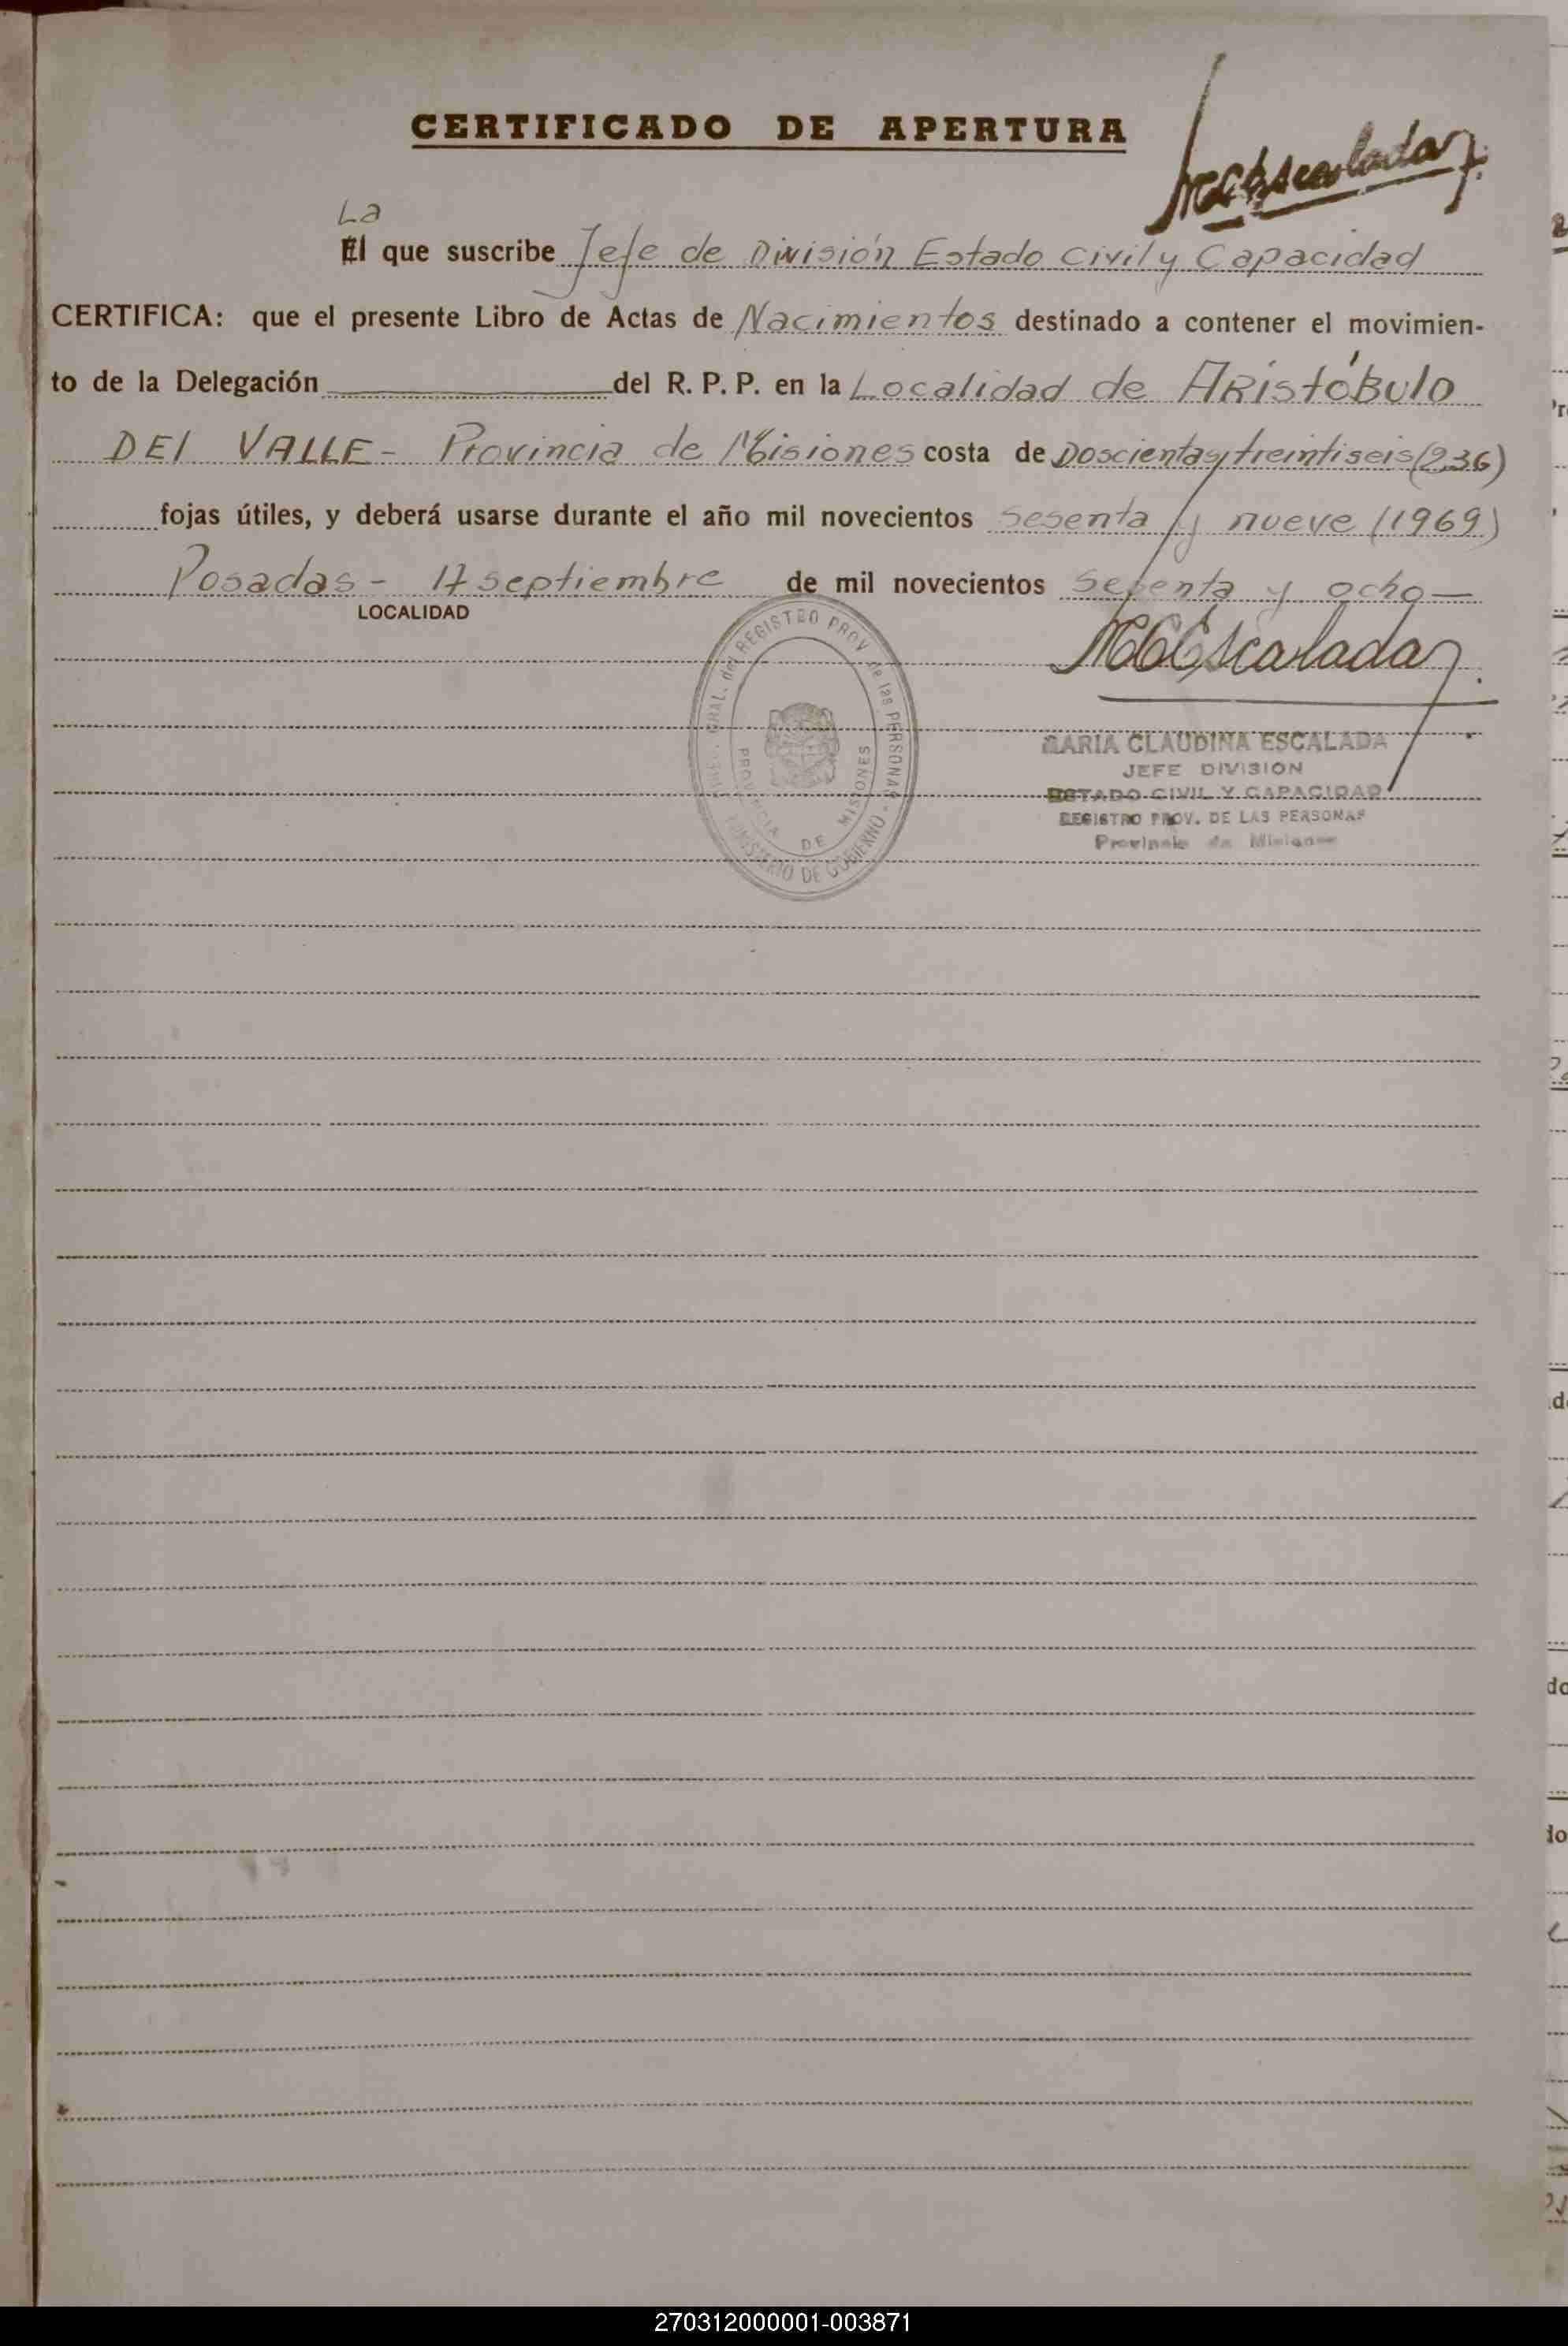 CERTIFICADO DE APERTURA
MCEscalada
La
El que suscribe Jefe de División Estado Civil y Capacidad
CERTIFICA: que el presente Libro de Actas de Nacimientos destinado a contener el movimien-
to de la Delegación del R. P. P. en la Localidad de ARistóBulo
DEl VALLE - Provincia de Misiones costa de Doscientas treintiseis (236)
fojas útiles, y deberá usarse durante el año mil novecientos sesenta y nueve (1969)
Posadas - 17 septiembre de mil novecientos sesenta y ocho —
LOCALIDAD
MCEscalada
GRAL. del REGISTRO PROV. de las PERSONAS - MINISTERIO DE GOBIERNO
PROVINCIA DE MISIONES
MARIA CLAUDINA ESCALADA
JEFE DIVISION
ESTADO CIVIL Y CAPACIDAD
REGISTRO PROV. DE LAS PERSONAS
Provincia de Misiones
270312000001-003871